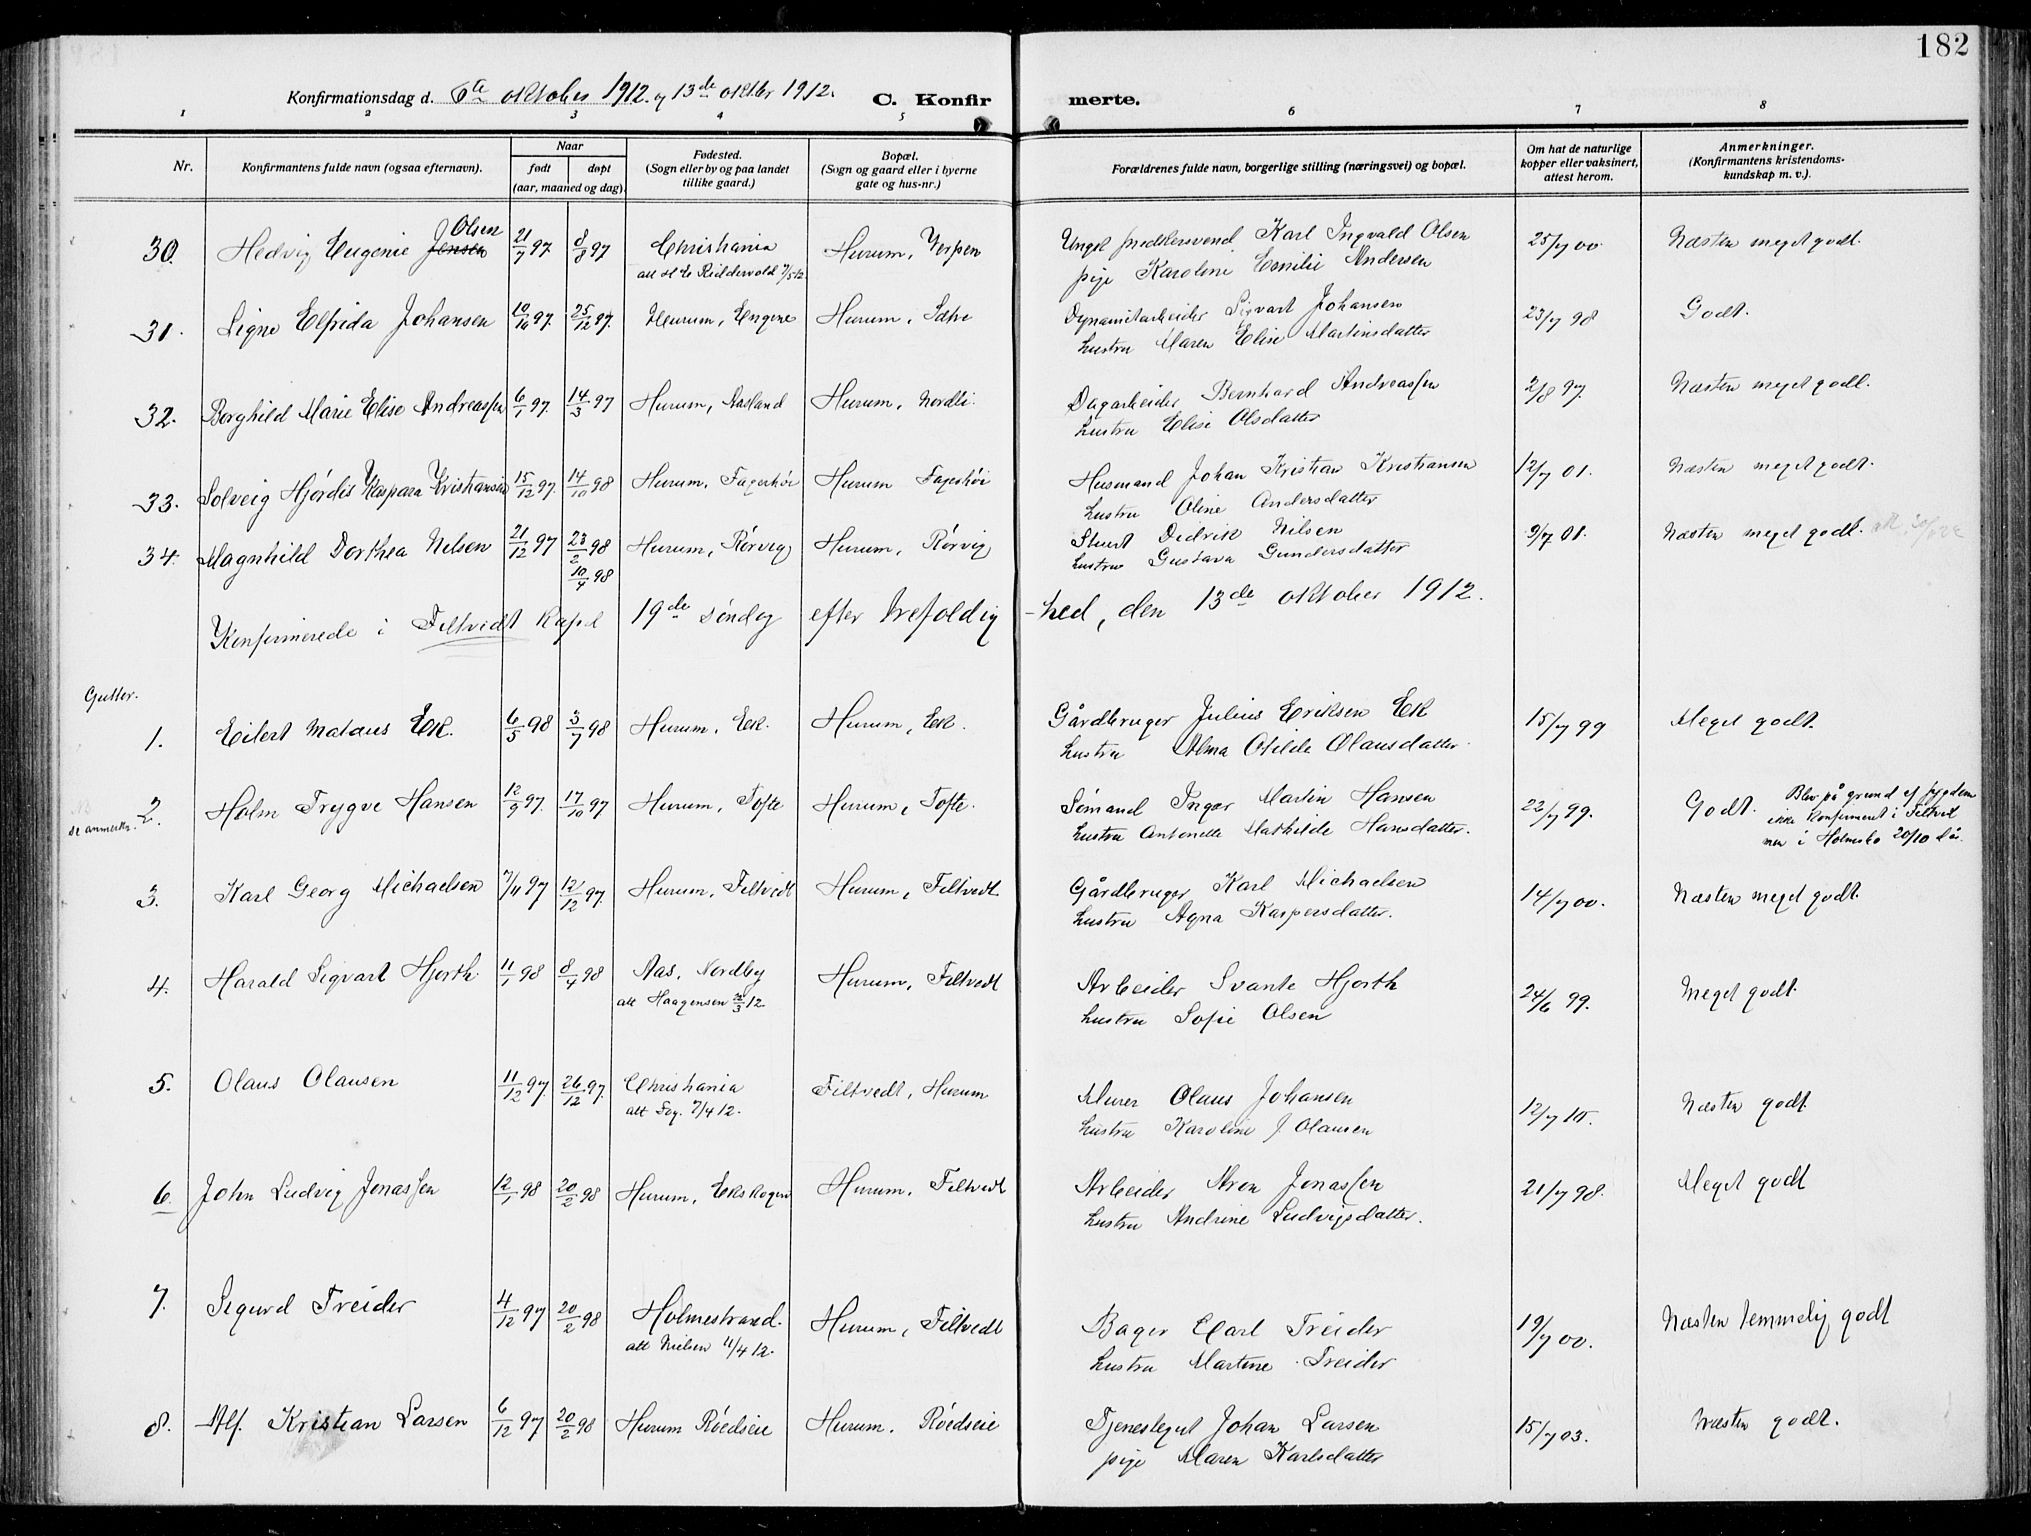 182
Konfirmationsdag d. 6te oktober 1912 og 13de oktbr 1912. C. Konfirmerte.
1 2 3 4 5 6 7 8
Nr. Konfirmantens fulde navn (ogsaa efternavn). Naar født døpt (aar, maaned og dag). Fødested. (Sogn eller by og paa landet tillike gaard.) Bopæl. (Sogn og gaard eller i byerne gate og hus-nr.) Forældrenes fulde navn, borgerlige stilling (næringsvei) og bopæl. Om hat de naturlige kopper eller vaksinert, attest herom. Anmerkninger. (Konfirmantens kristendoms-kundskap m. v.).
30. Hedvig Eugenie Jensen Olsen 21/7 97 8/8 97 Christiania Hurum, Yerpen Ungk. Karl Ingvald Olsen 25/7 00. Næsten meget godt.
7/5 12 pige Karoline Emilie Andersen
31. Signe Elfrida Johansen 10/10 97. 25/12 97. Hurum, Engene Hurum, Sætre Dynamitarbeider Sigvart Johansen 23/7 98 Godt.
hustru Maren Elise Martinsdatter
32. Borghild Marie Elise Andreassen 6/1 97. 14/3 97 Hurum, Aasland Hurum, Nordli. Dagarbeider Bernhard Andreassen 2/8 97. Næsten meget godt.
hustru Elise Olsdatter
33. Solveig Hjørdis Kaspara Kristiansen 15/12 97. 14/10 98 Hurum, Fagerhøi Hurum Fagerhøi Husmand Johan Kristian Kristiansen 12/7 01. Næsten meget godt.
hustru Oline Andersdatter
34. Magnhild Dorthea Nilsen 21/12 97 23/2 98 Hurum, Rørvig Hurum, Rørvig Stuert Didrik Nilsen 9/7 01. Næsten meget godt.
10/4 98 hustru Gustava Gundersdatter
Konfirmerede i Filtvedt Kapel 19de søndag efter trefoldig-hed, den 13de oktober 1912.
Gutter.
1. Eilert Mataus Ek. 6/5 98 3/7 98 Hurum, Ek. Hurum, Ek. Gårdbruger Julius Eriksen Ek 15/7 99 Meget godt.
hustru Alma Otilde Olausdatter.
2. Holm Trygve Hansen 12/9 97. 17/10 97 Hurum, Tofte Hurum, Tofte. Sømand Ingar Martin Hansen 22/7 99. Godt. Blev på grund af sygdom
se anmerkn. hustru Antonette Mathilde Hansdatter. ikke konfirmert i Filtvet
men i Holmsbo 20/10 d år.
3. Karl Georg Michaelsen 7/11 97 12/12 97. Hurum, Filtvedt Hurum, Filtvedt Gårdbruger Karl Michaelsen 14/7 00. Næsten meget godt.
hustru Agna Kaspersdatter.
4. Harald Sigvart Hjorth. 11/1 98 8/4 98 Aas, Nordby Hurum, Filtvedt Arbeider Svante Hjorth 24/6 99. Meget godt.
att Haagensen /3 12. hustru Sofie Olsen
5. Olaus Olausen 11/12 97. 26/12 97. Christiania Filtvedt, Hurum Murer Olaus Johansen 12/7 10. Næsten godt
7/4 12. hustru Karoline J. Olausen
6. John Ludvig Jonassen 12/1 98 20/2 98 Hurum, Ekskogen Hurum, Filtvedt Arbeider Aron Jonassen 21/7 98. Meget godt
hustru Andrine Ludvigsdatter.
7. Sigurd Treider 4/12 97 20/2 98 Holmestrand. Hurum, Filtvedt Bager Carl Treider 19/7 00. Næsten temmelig godt
att Nielsen 11/4 12. hustru Martine Treider
8. Alf Kristian Larsen 6/12 97 20/2 98 Hurum Røedseie Hurum. Røedseie Tjenestegut Johan Larsen 15/7 03. Næsten godt.
pige Maren Karlsdatter